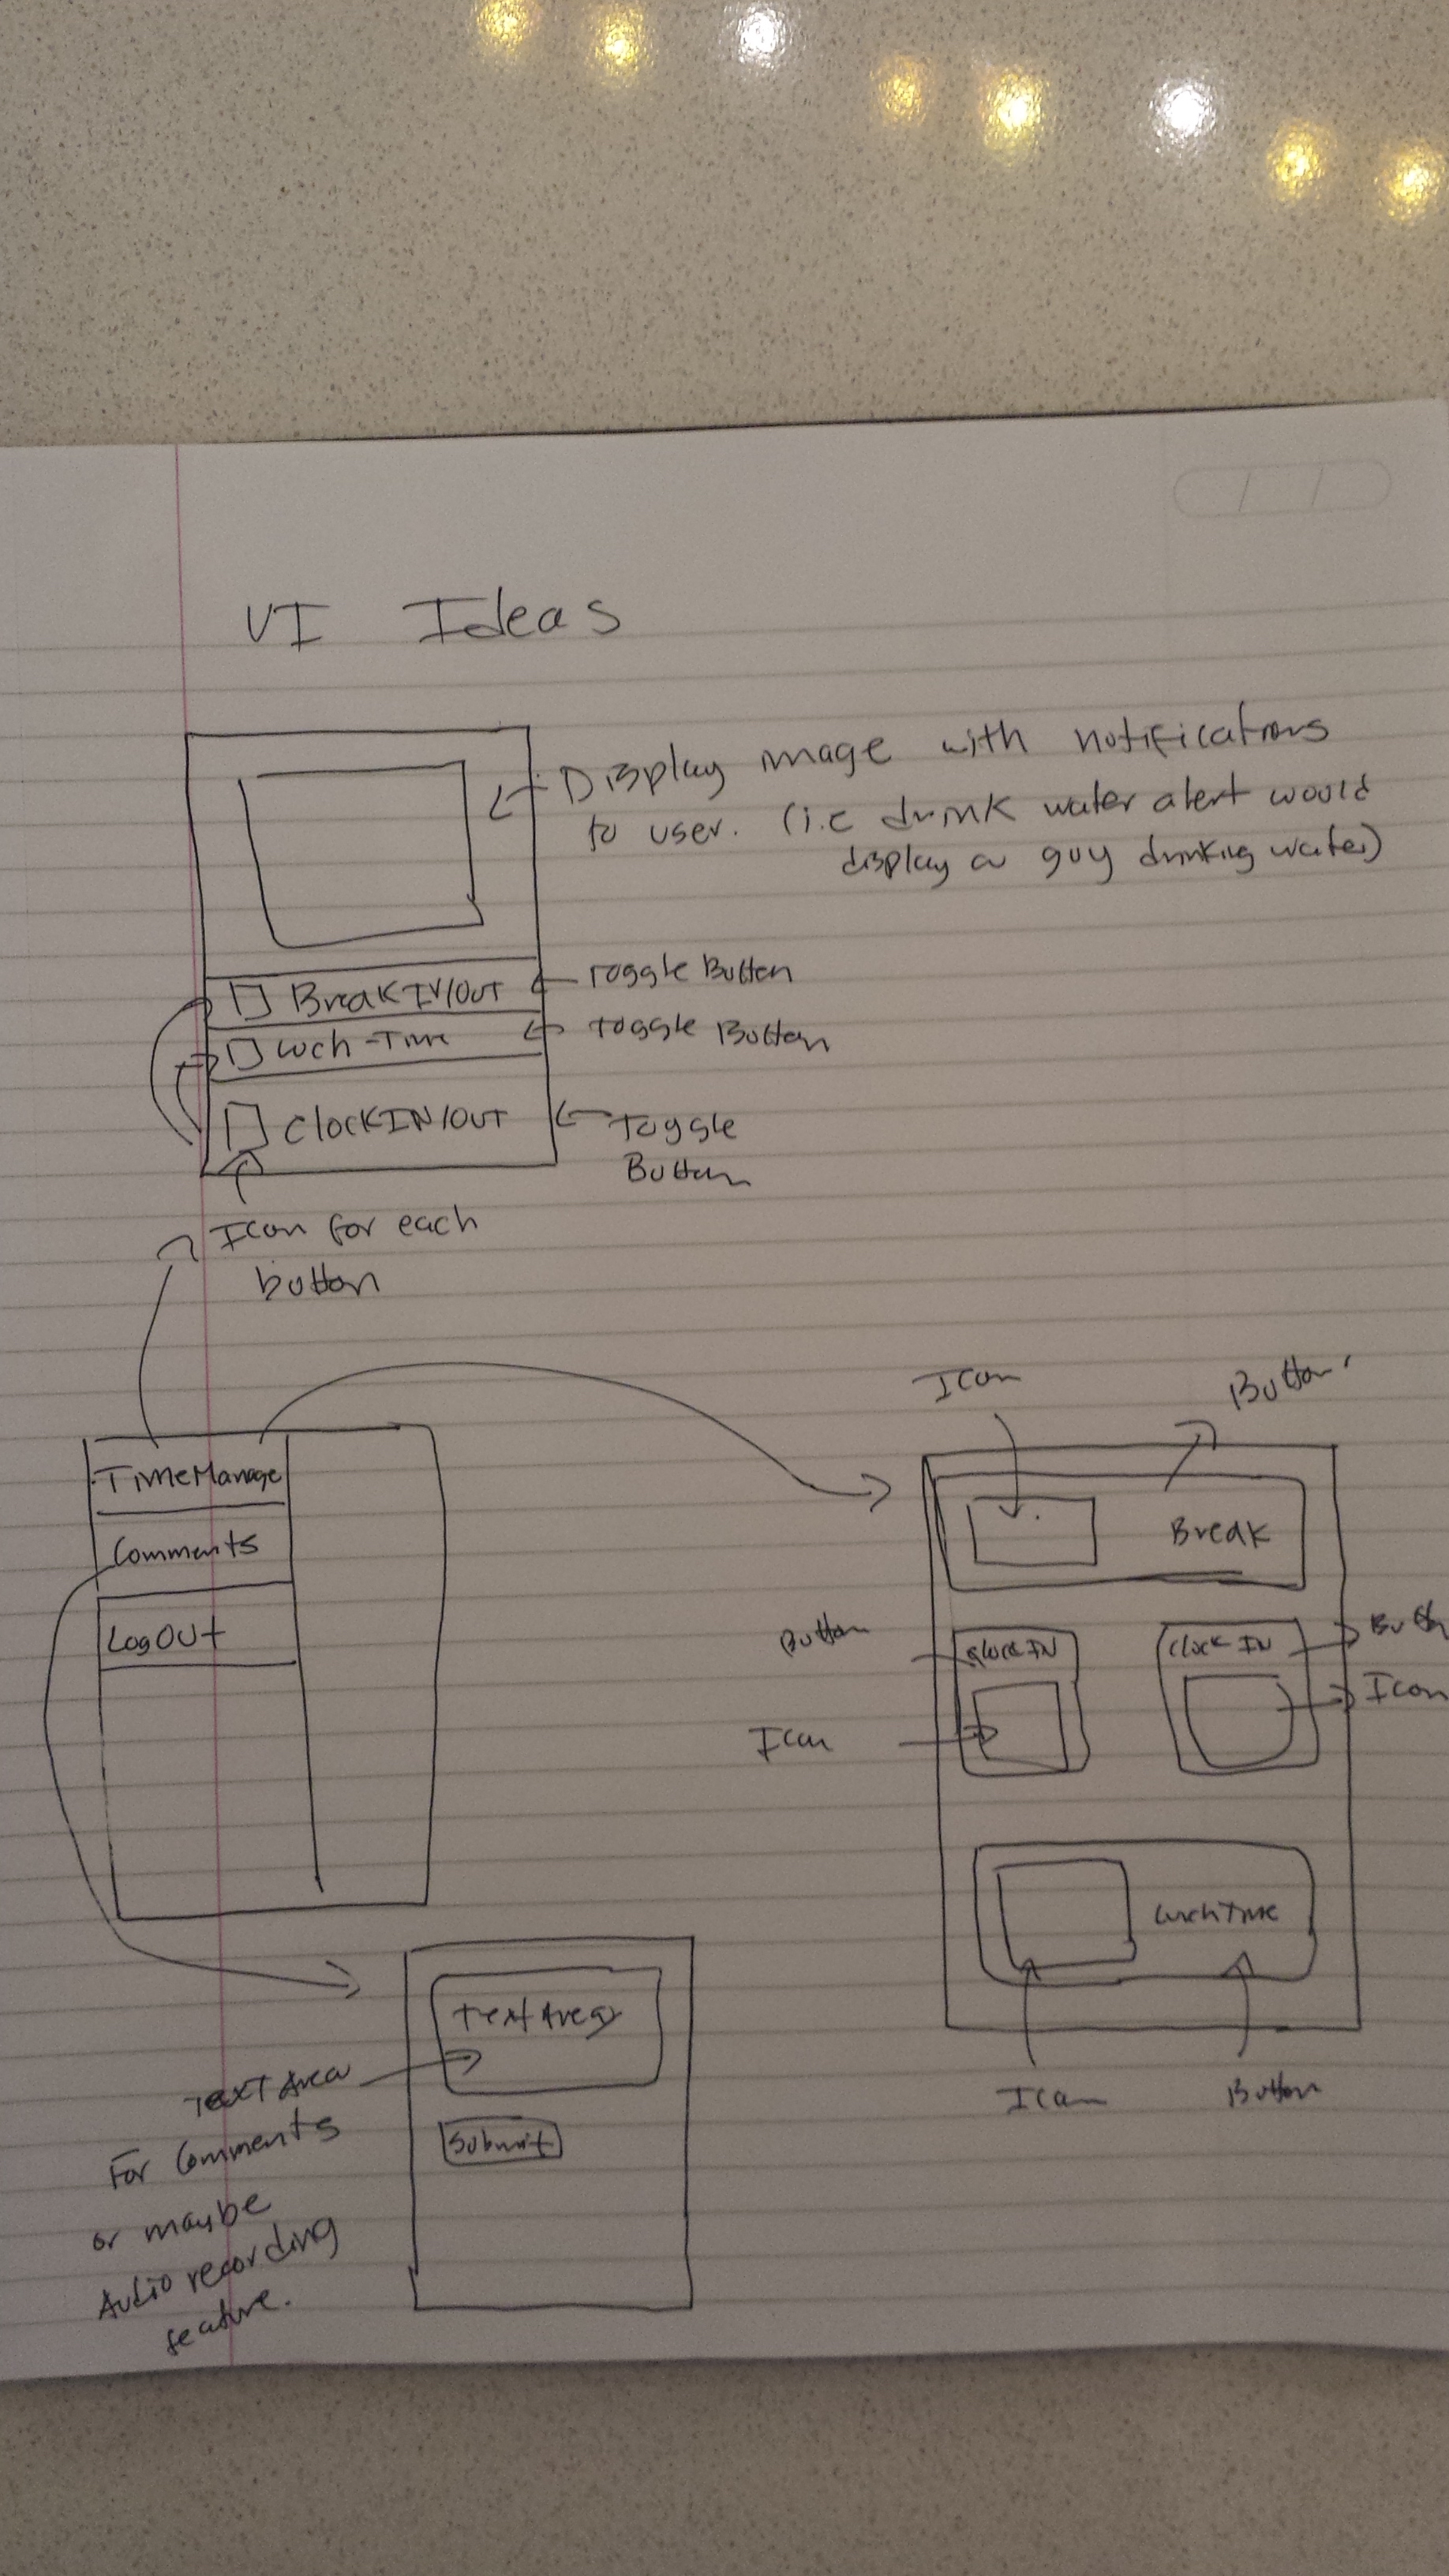 UI Ideas
Display image with notifications
to user. (i.e drink water alert would
display a guy drinking water)
BreakIN/OUT
Toggle Button
Luch-Time
Toggle Button
ClockIN/OUT
Toggle
Button
Icon for each
button
TimeManage
Comments
LogOUt
Icon
Button
Break
Button
ClockIN
Clock IN
Icon
Icon
LuchTime
Icon
Button
TextArea
Submit
Text Area
For Comments
or maybe
Audio recording
feature.